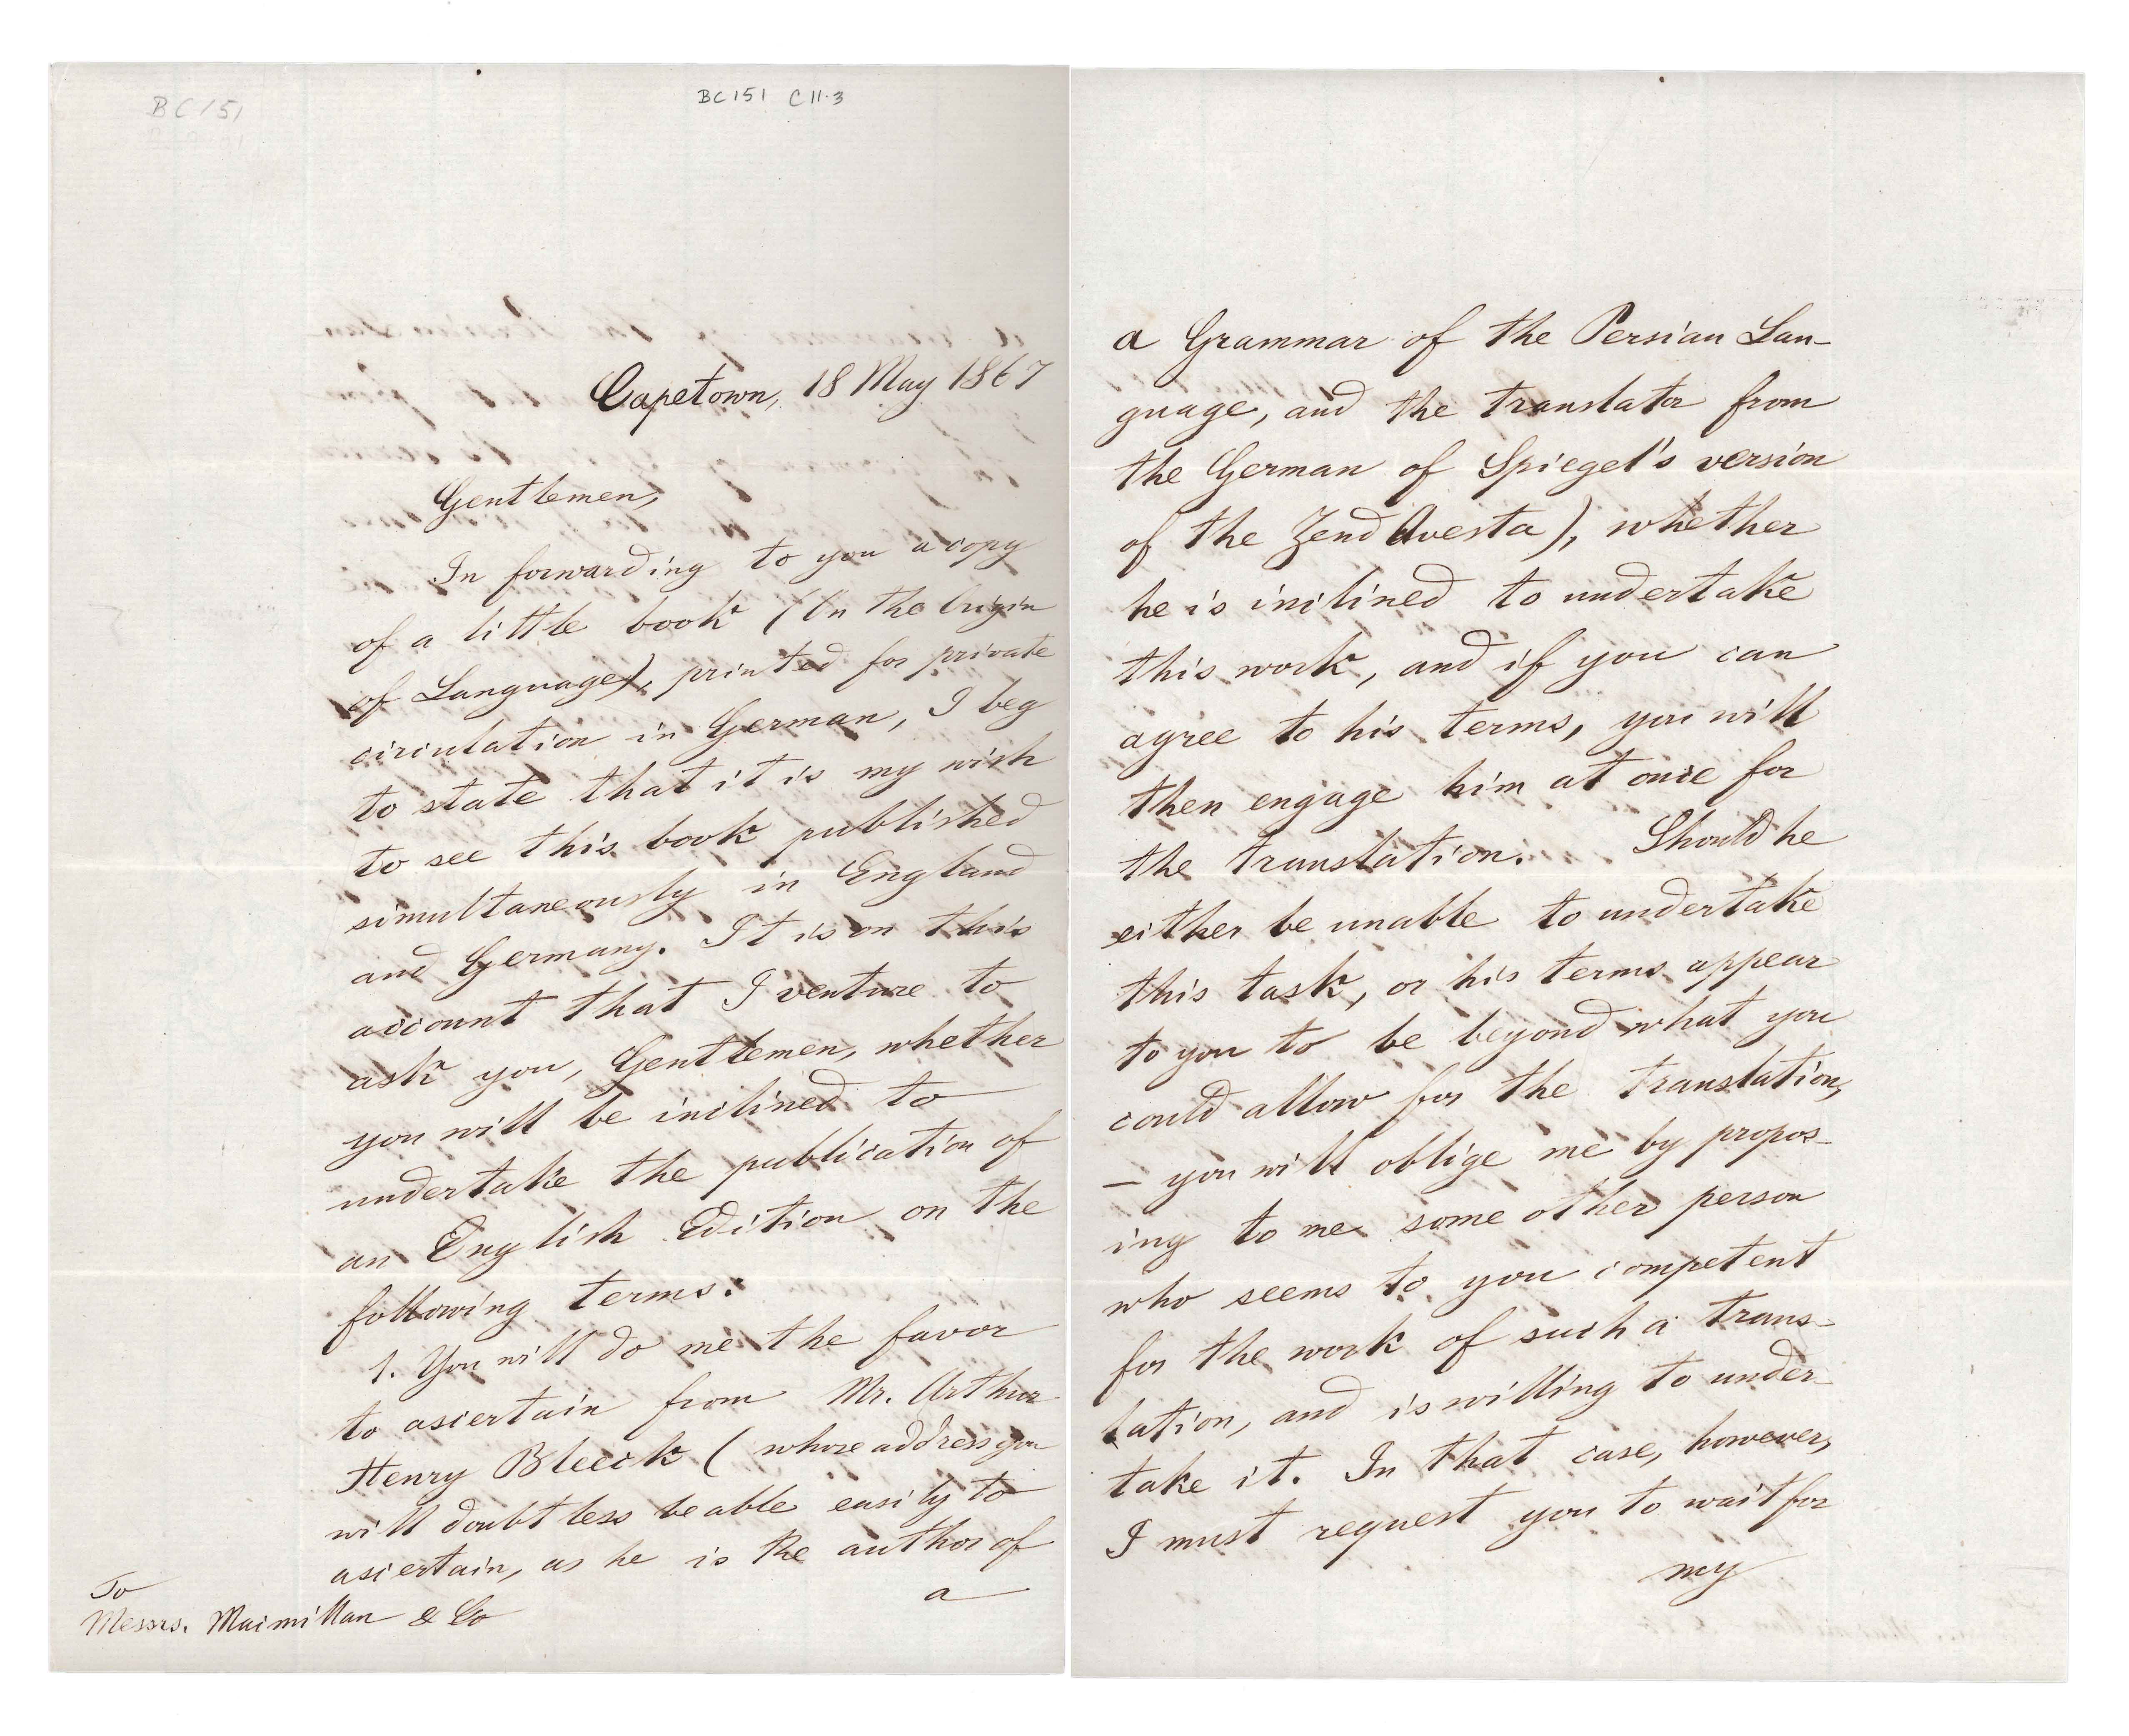 BC 151
BC 151 C11.3
Capetown, 18 May 1867
Gentlemen,
In forwarding to you a copy
of a little book (On the Origin
of Language), printed for private
circulation in German, I beg
to state that it is my wish
to see this book published
simultaneously in England
and Germany. It is on this
account that I venture to
ask you, Gentlemen, whether
you will be inclined to
undertake the publication of
an English Edition on the
following terms:
1. You will do me the favor
to ascertain from Mr. Arthur
Henry Bleeck (whose address you
will doubtless be able easily to
ascertain, as he is the author of
a
To
Messrs. Macmillan & Co
a Grammar of the Persian Lan-
guage, and the translator from
the German of Spiegel's version
of the Zend Avesta), whether
he is inclined to undertake
this work, and if you can
agree to his terms, you will
then engage him at once for
the translation. Should he
either be unable to undertake
this task, or his terms appear
to you to be beyond what you
could allow for the translation,
– you will oblige me by propos-
ing to me some other person
who seems to you competent
for the work of such a trans-
lation, and is willing to under-
take it. In that case, however,
I must request you to wait for
my